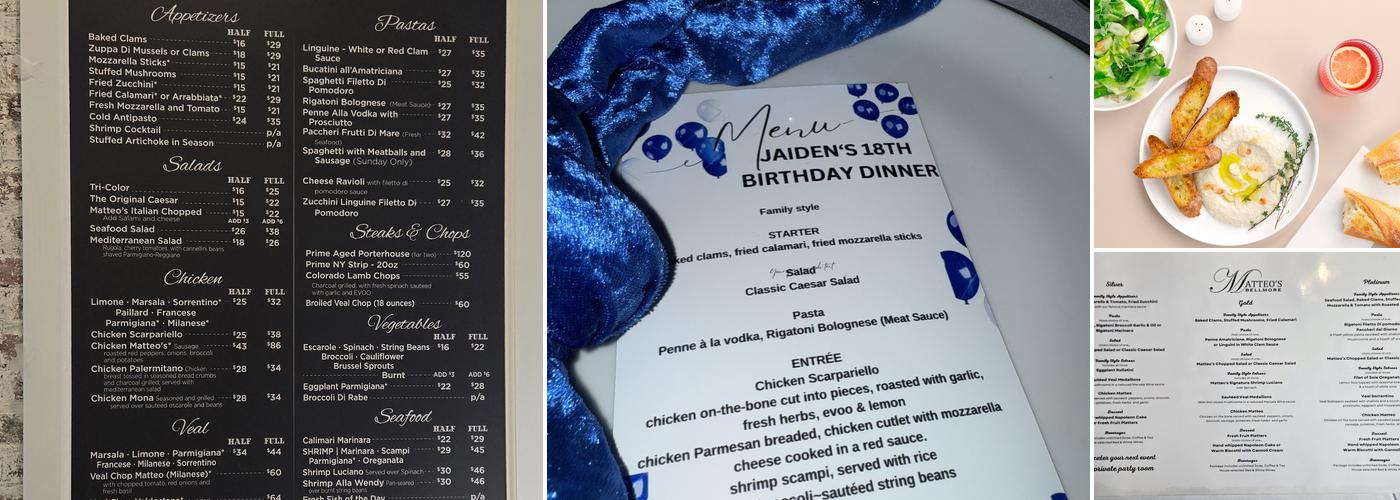 Appetizers
HALF FULL
Baked Clams $16 $29
Zuppa Di Mussels or Clams $18 $29
Mozzarella Sticks* $15 $21
Stuffed Mushrooms $15 $21
Fried Zucchini* $15 $21
Fried Calamari* or Arrabbiata* $22 $29
Fresh Mozzarella and Tomato $15 $21
Cold Antipasto $24 $35
Shrimp Cocktail p/a
Stuffed Artichoke in Season p/a
Salads
HALF FULL
Tri-Color $16 $25
The Original Caesar $15 $22
Matteo's Italian Chopped $15 $22
Add Salami and cheese ADD $3 ADD $6
Seafood Salad $26 $38
Mediterranean Salad $18 $26
Rugola, cherry tomatoes, with cannellini beans
shaved Parmigiano-Reggiano
Chicken
HALF FULL
Limone · Marsala · Sorrentino* $25 $32
Paillard · Francese
Parmigiana* · Milanese*
Chicken Scarpariello $25 $38
Chicken Matteo's* Sausage, $43 $86
roasted red peppers, onions, broccoli
and potatoes
Chicken Palermitano Chicken $28 $34
breast tossed in seasoned bread crumbs
and charcoal grilled; served with
mediterranean salad
Chicken Mona Seasoned and grilled $28 $34
served over sauteed escarole and beans
Veal
HALF FULL
Marsala · Limone · Parmigiana* $34 $44
Francese · Milanese · Sorrentino
Veal Chop Matteo (Milanese)* $60
with chopped tomato, red onions and
fresh basil
$64
Pastas
HALF FULL
Linguine - White or Red Clam $27 $35
Sauce
Bucatini all'Amatriciana $27 $35
Spaghetti Filetto Di $25 $32
Pomodoro
Rigatoni Bolognese (Meat Sauce) $27 $35
Penne Alla Vodka with $27 $35
Prosciutto
Paccheri Frutti Di Mare (Fresh $32 $42
Seafood)
Spaghetti with Meatballs and $28 $36
Sausage (Sunday Only)
Cheese Ravioli with filetto di $25 $32
pomodoro sauce
Zucchini Linguine Filetto Di $27 $35
Pomodoro
Steaks & Chops
Prime Aged Porterhouse (for two) $120
Prime NY Strip - 20oz $60
Colorado Lamb Chops $55
Charcoal grilled; with fresh spinach sauteed
with garlic and EVOO
Broiled Veal Chop (18 ounces) $60
Vegetables
HALF FULL
Escarole · Spinach · String Beans $16 $22
Broccoli · Cauliflower
Brussel Sprouts
Burnt ADD $3 ADD $6
Eggplant Parmigiana* $22 $28
Broccoli Di Rabe p/a
Seafood
HALF FULL
Calimari Marinara $22 $29
SHRIMP | Marinara · Scampi $29 $45
Parmigiana* · Oreganata
Shrimp Luciano Served over Spinach $30 $46
Shrimp Alla Wendy Pan-seared $30 $46
over burnt string beans
Fresh Fish of the Day p/a
Menu
JAIDEN'S 18TH
BIRTHDAY DINNER
Family style
STARTER
ked clams, fried calamari, fried mozzarella sticks
Salad
Classic Caesar Salad
Pasta
Penne à la vodka, Rigatoni Bolognese (Meat Sauce)
ENTRÉE
Chicken Scarpariello
chicken on-the-bone cut into pieces, roasted with garlic,
fresh herbs, evoo & lemon
chicken Parmesan breaded, chicken cutlet with mozzarella
cheese cooked in a red sauce.
shrimp scampi, served with rice
broccoli~sautéed string beans
MATTEO'S
BELLMORE
Silver
Family Style Appetizers
Pasta
Salad
Dessert
Beverages
cater your next event
private party room
Gold
Family Style Appetizers
Baked Clams, Stuffed Mushrooms, Fried Calamari
Pasta
Penne Amatriciana, Rigatoni Bolognese
or Linguini in White Clam Sauce
Salad
Matteo's Chopped Salad or Classic Caesar Salad
Family Style Entrees
Matteo's Signature Shrimp Luciano
Sautéed Veal Medallions
Chicken Matteo
Dessert
Fresh Fruit Platters
Hand whipped Napoleon Cake or
Warm Biscotti with Cannoli Cream
Beverages
Platinum
Family Style Appetizers
Pasta
Salad
Family Style Entrees
Chicken Matteo
Dessert
Fresh Fruit Platters
Beverages